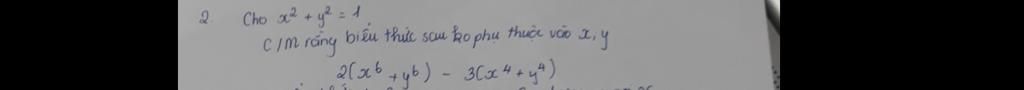 2. Cho x² + y² = 1
C/M rằng biểu thức sau ko phụ thuộc vào x, y
2(x⁶ + y⁶) - 3(x⁴ + y⁴)